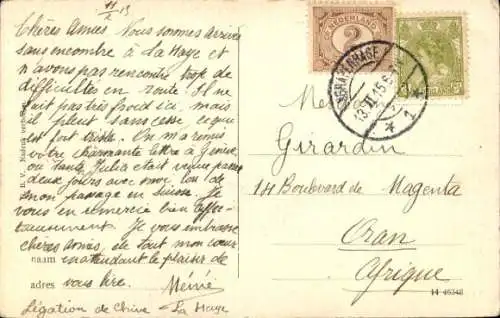 11/2 15
Chères amies Nous sommes arrivés
sans encombre à La Haye et
n'avons pas rencontré trop de
difficultés en route. Il ne
fait pas très froid ici, mais
il pleut sans cesse, ce qui
est fort triste. On m'a remis
votre charmante lettre à Genève
où Julia était venue passer
deux jours avec moi, lors de
mon passage en Suisse. Je
vous en remercie bien affec-
tueusement. Je vous embrasse
chères amies, de tout mon cœur
en attendant le plaisir de
vous lire.
naam
adres
Légation de Chine La Haye
NEDERLAND
2
'SGRAVENHAGE
13.II.15.6
1
Girardin
14 Boulevard de Magenta
Oran
Afrique
14 46348